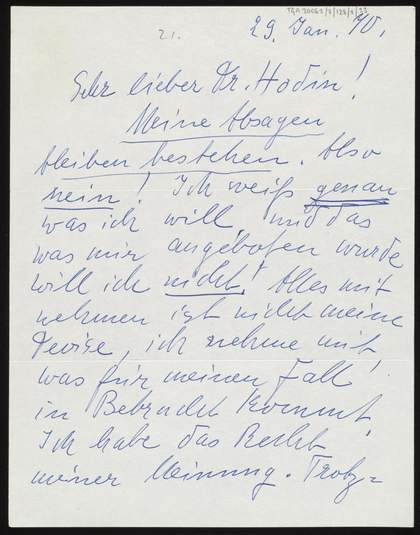 21.
29. Jan. 70.
Sehr lieber Dr. Hodin!
Meine Absagen
bleiben bestehen. Also
nein! Ich weiß genau
was ich will, und das
was mir angeboten wurde
will ich nicht! Alles mit
nehmen ist nicht meine
Devise, ich nehme mit
was für meinen Fall
in Betracht kommt!
Ich habe das Recht
meiner Meinung. Trotz=